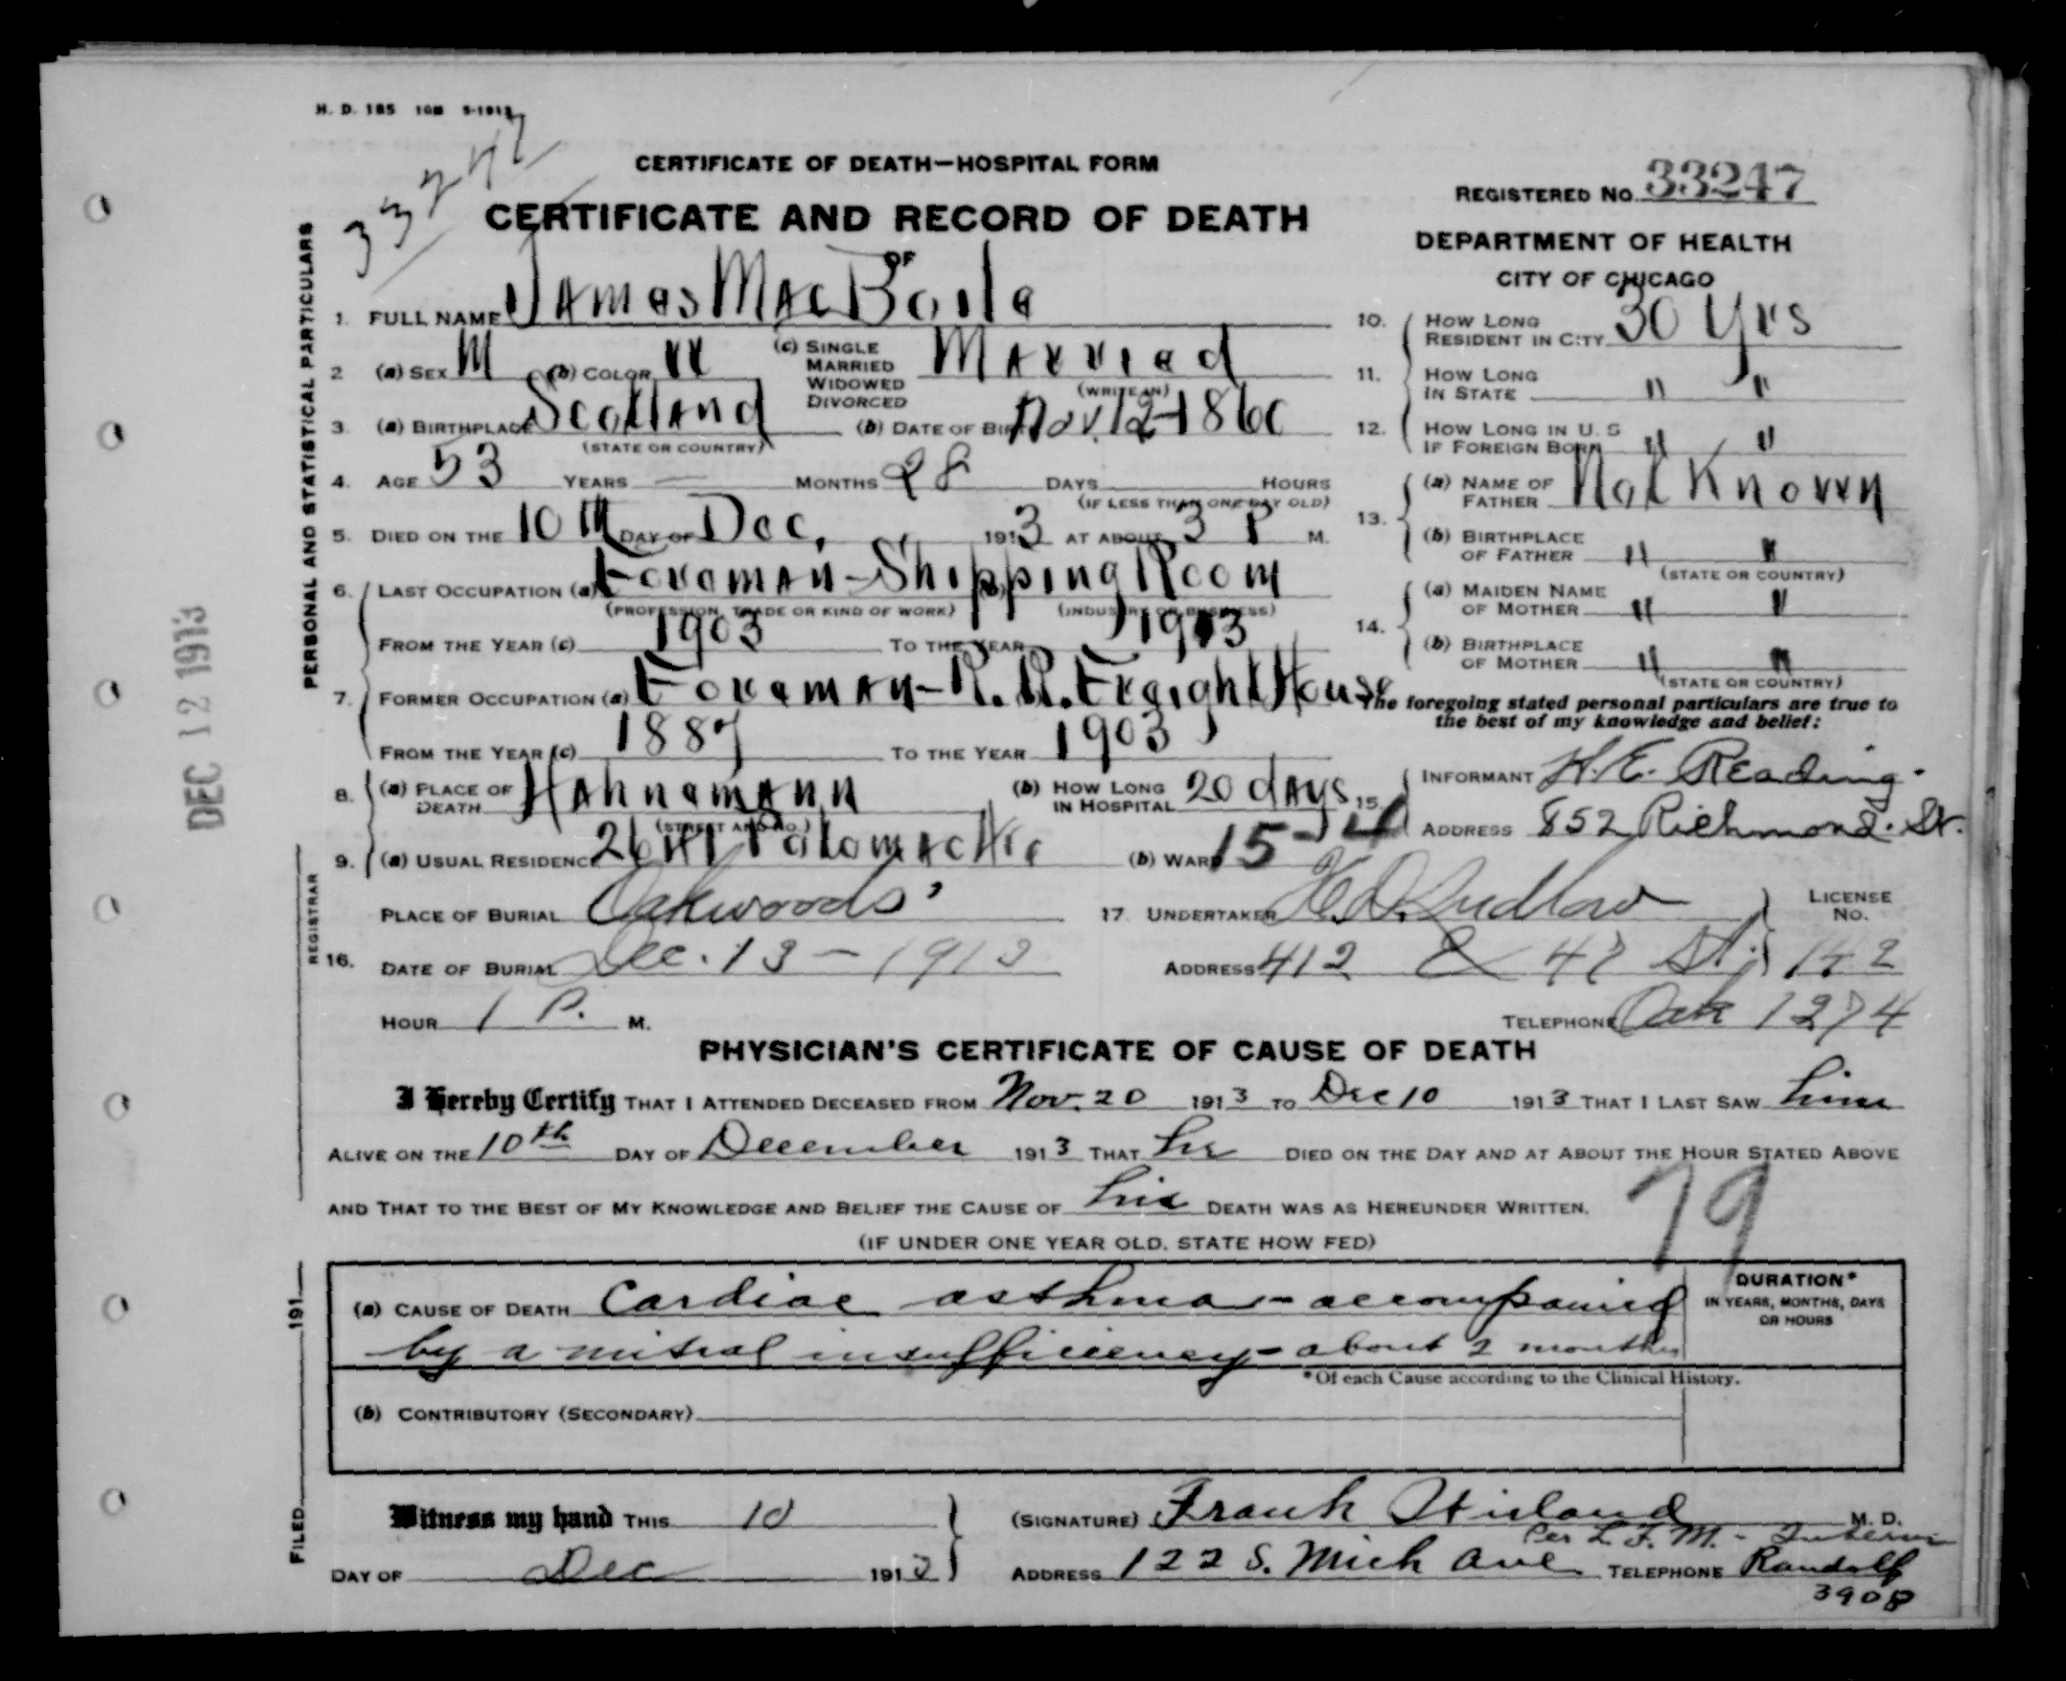 H. D. 185 10M 5-1913
33247
CERTIFICATE OF DEATH—HOSPITAL FORM
REGISTERED NO. 33247
CERTIFICATE AND RECORD OF DEATH
OF
DEPARTMENT OF HEALTH
CITY OF CHICAGO
PERSONAL AND STATISTICAL PARTICULARS
1. FULL NAME James MacBoile
2 (a) SEX M (b) COLOR W (c) SINGLE MARRIED WIDOWED DIVORCED Married
(WRITE IN)
3. (a) BIRTHPLACE Scotland (b) DATE OF BIRTH Nov. 12-1860
(STATE OR COUNTRY)
4. AGE 53 YEARS — MONTHS 28 DAYS HOURS
(IF LESS THAN ONE DAY OLD)
5. DIED ON THE 10th DAY OF Dec, 1913 AT ABOUT 3 P M.
6. LAST OCCUPATION (a) Foreman-Shipping Room
(PROFESSION, TRADE OR KIND OF WORK) (INDUSTRY OR BUSINESS)
FROM THE YEAR (c) 1903 TO THE YEAR 1913
7. FORMER OCCUPATION (a) Foreman-R.R. Freight House
FROM THE YEAR (c) 1887 TO THE YEAR 1903
8. (a) PLACE OF DEATH Hahnemann (b) HOW LONG IN HOSPITAL 20 days
(STREET AND NO.)
9. (a) USUAL RESIDENCE Potomac Ave (b) WARD 15
10. HOW LONG RESIDENT IN CITY 30 Yrs
11. HOW LONG IN STATE " "
12. HOW LONG IN U. S IF FOREIGN BORN " "
13. (a) NAME OF FATHER Not Known
(b) BIRTHPLACE OF FATHER " "
(STATE OR COUNTRY)
14. (a) MAIDEN NAME OF MOTHER " "
(b) BIRTHPLACE OF MOTHER " "
(STATE OR COUNTRY)
The foregoing stated personal particulars are true to
the best of my knowledge and belief:
15. INFORMANT H. E. Reading.
ADDRESS 852 Richmond. St.
DEC 12 1913
REGISTRAR
PLACE OF BURIAL Oakwoods
17 UNDERTAKER H.D. Ludlow LICENSE NO.
16. DATE OF BURIAL Dec. 13 – 1913
ADDRESS 412 E 47 St. 142
HOUR 1 P. M.
TELEPHONE Oak 1274
PHYSICIAN'S CERTIFICATE OF CAUSE OF DEATH
I Hereby Certify THAT I ATTENDED DECEASED FROM Nov. 20 1913 TO Dec 10 1913 THAT I LAST SAW him
ALIVE ON THE 10th DAY OF December 1913 THAT he DIED ON THE DAY AND AT ABOUT THE HOUR STATED ABOVE
AND THAT TO THE BEST OF MY KNOWLEDGE AND BELIEF THE CAUSE OF his DEATH WAS AS HEREUNDER WRITTEN.
79
(IF UNDER ONE YEAR OLD, STATE HOW FED)
(a) CAUSE OF DEATH Cardiac asthma - accompanied
by a mitral insufficiency - about 2 months
DURATION*
IN YEARS, MONTHS, DAYS
OR HOURS
*Of each Cause according to the Clinical History.
(b) CONTRIBUTORY (SECONDARY)
FILED 191
Witness my hand THIS 10
DAY OF Dec 1913
(SIGNATURE) Frank M. D.
Per L. F. M. - Intern
ADDRESS 122 S. Mich Ave TELEPHONE Randolf
3908